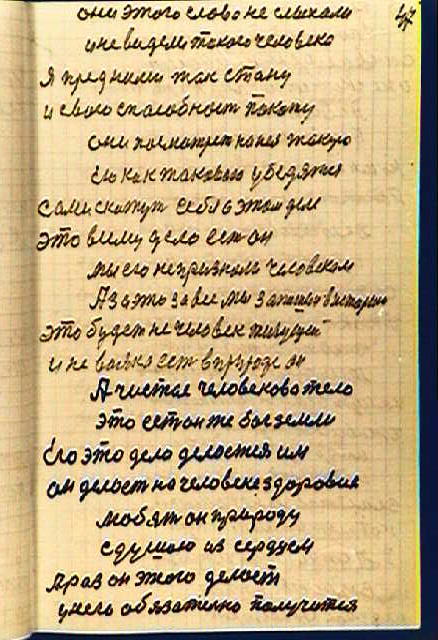 они этого слова не слыхали
47
и не видели такого человека
Я пред ними так стану
и свою способност покажу
они посмотрят на такую
его как такового убедятся
сами скажут себе о этом деле
это всиму дело ест он
мы его не признали человеком
А за это за все мы запишем в историю
это будет не человек живущий
и не волка ест в природе он
А чистае человекова тело
это ест он же бог земли
Его это дело делается им
он делает на человеке здоровия
любят он природу
с душою из сердцем
А раз он этого делает
у него обязательно получится